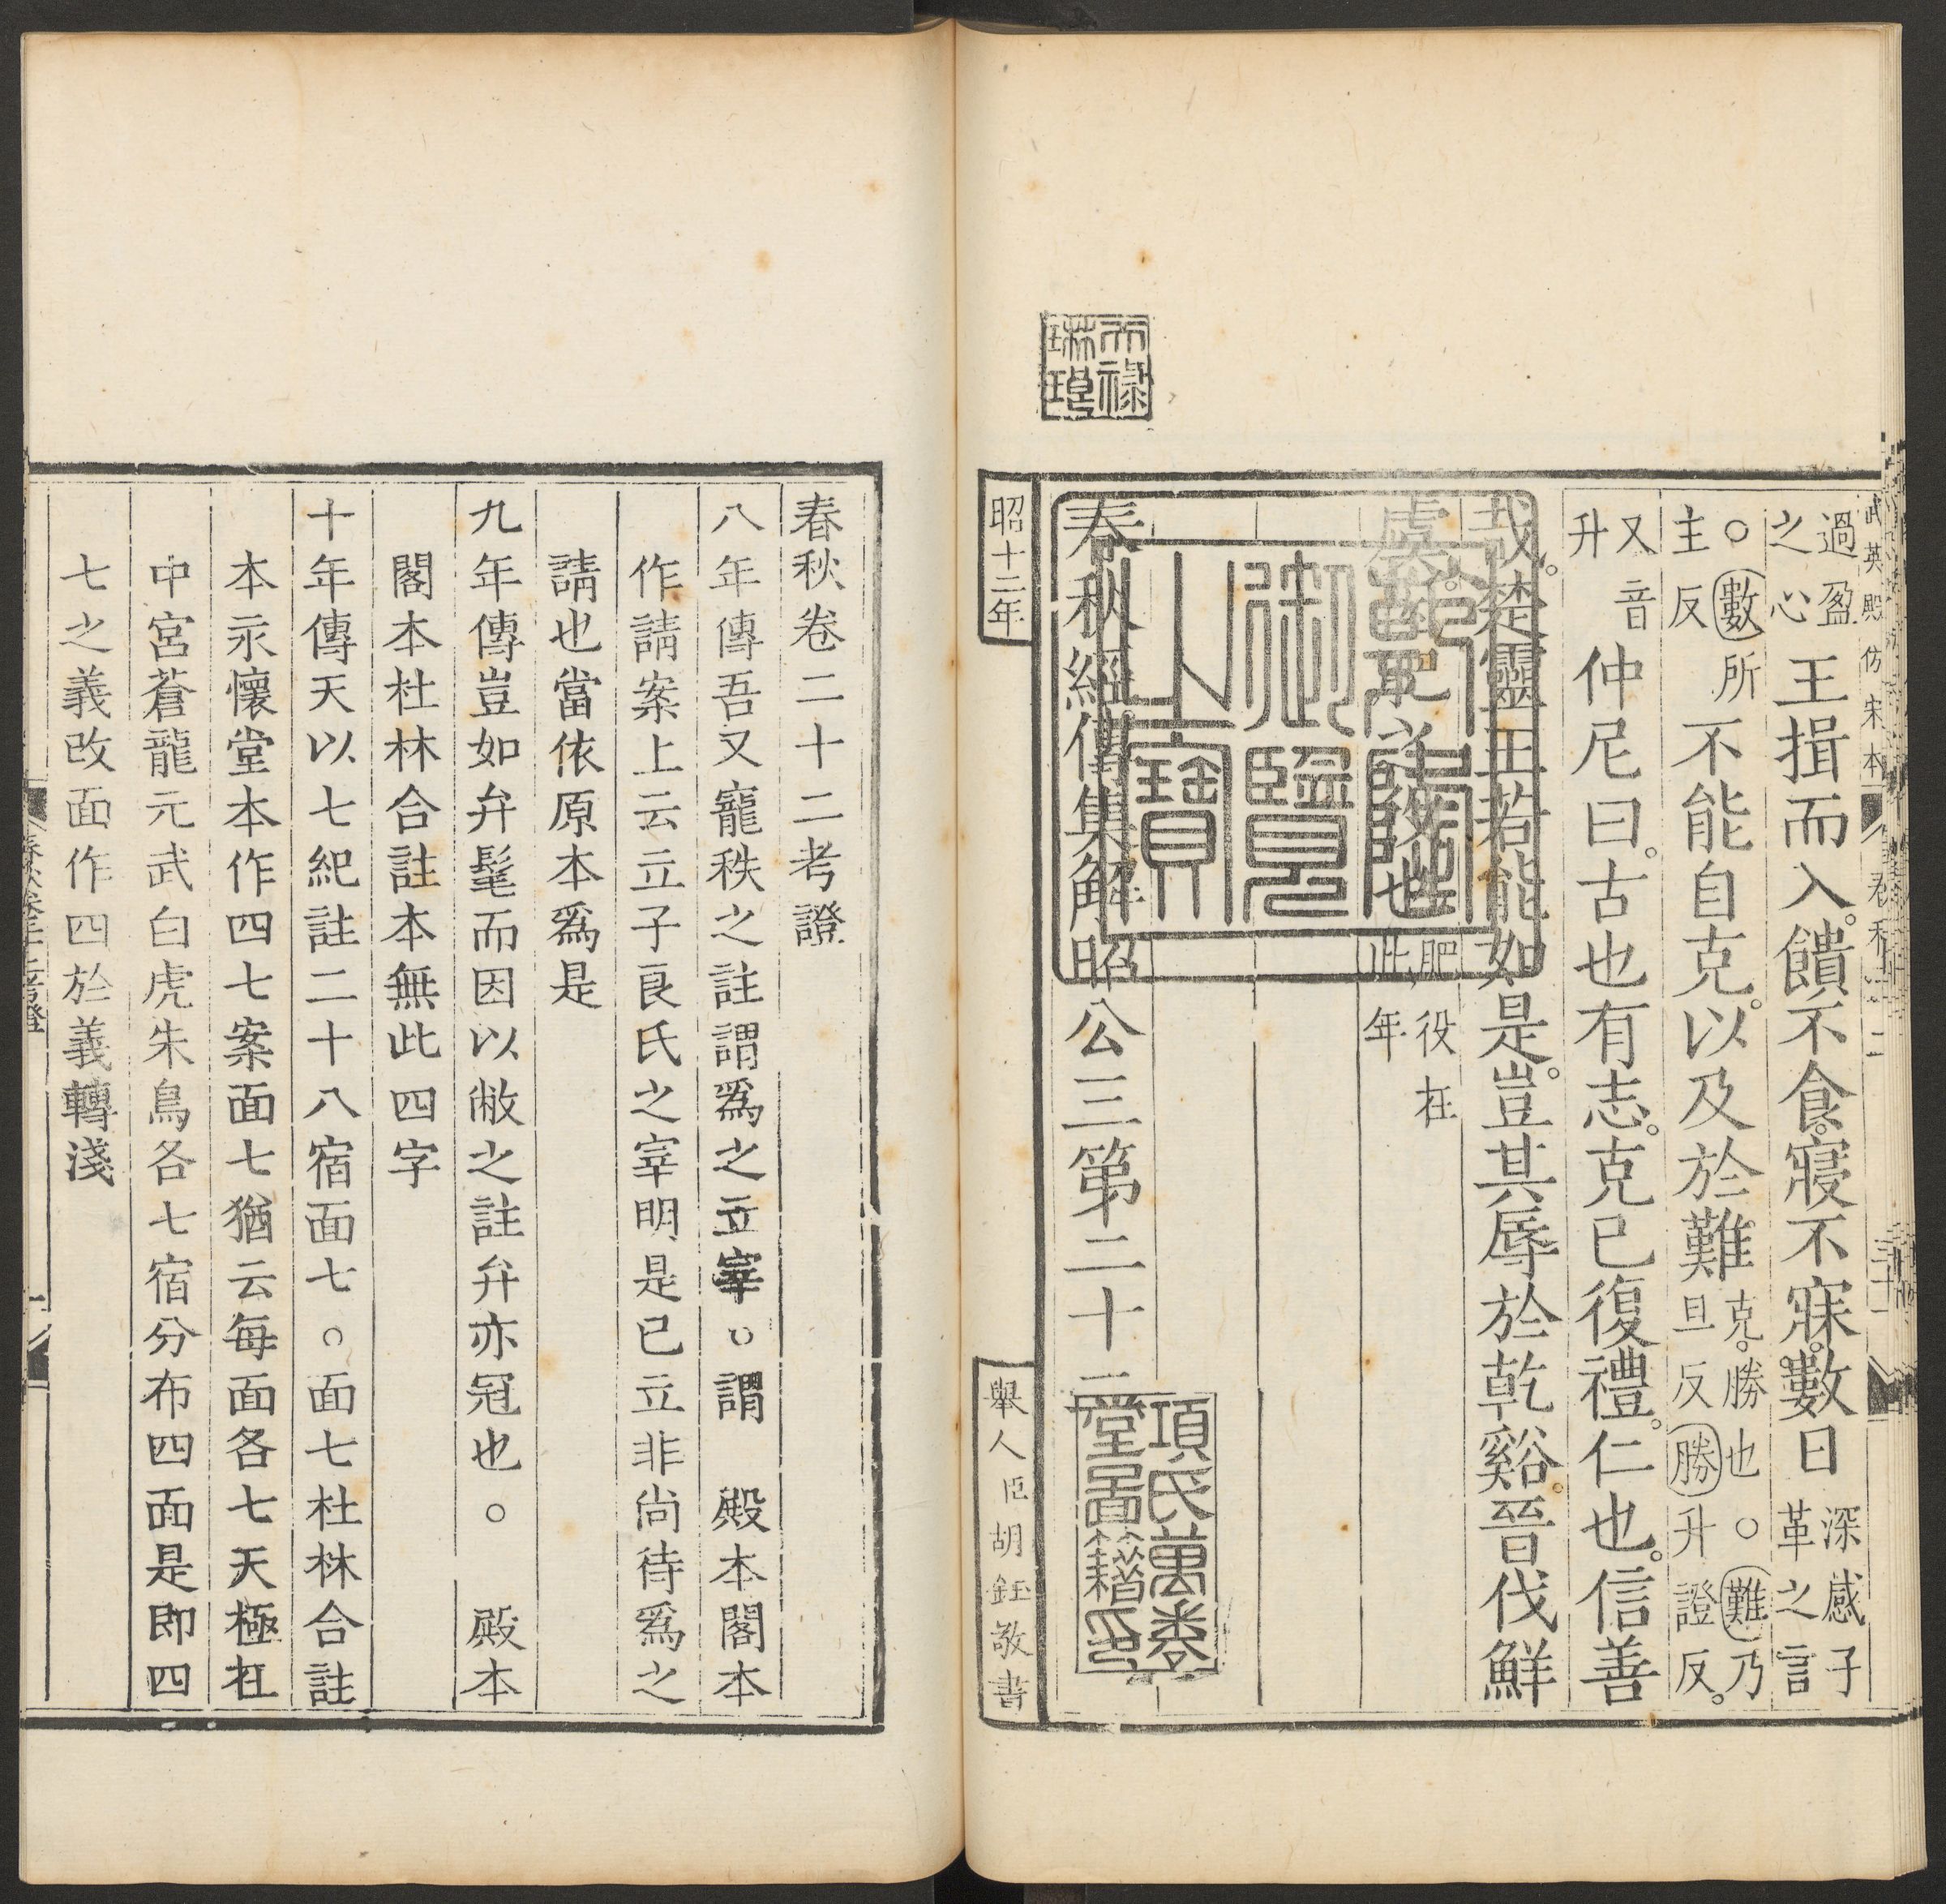 武英殿仿宋本
春秋二
三十一
過盈
之心
王揖而入。饋不食。寢不寐。數日
深感子
革之言
○數所
主反
不能自克。以及於難
克。勝也○難乃
旦反勝升證反。
又音
升
仲尼曰。古也有志。克己復禮。仁也。信善
哉。楚靈王若能如是。豈其辱於乾谿。晉伐鮮
虞。
肥役在
此年
春秋經傳集解昭公三第二十二
昭十二年
舉人臣胡鈺敬書
天祿琳琅
乾隆御覽之寶
項氏萬卷堂圖籍印
春秋卷二十二考證
八年傳吾又寵秩之註謂爲之立宰○謂 殿本閣本
作請案上云立子良氏之宰明是已立非尚待爲之
請也當依原本爲是
九年傳豈如弁髦而因以敝之註弁亦冠也○ 殿本
閣本杜林合註本無此四字
十年傳天以七紀註二十八宿面七○面七杜林合註
本永懷堂本作四七案面七猶云每面各七天極在
中宮蒼龍元武白虎朱鳥各七宿分布四面是即四
七之義改面作四於義轉淺